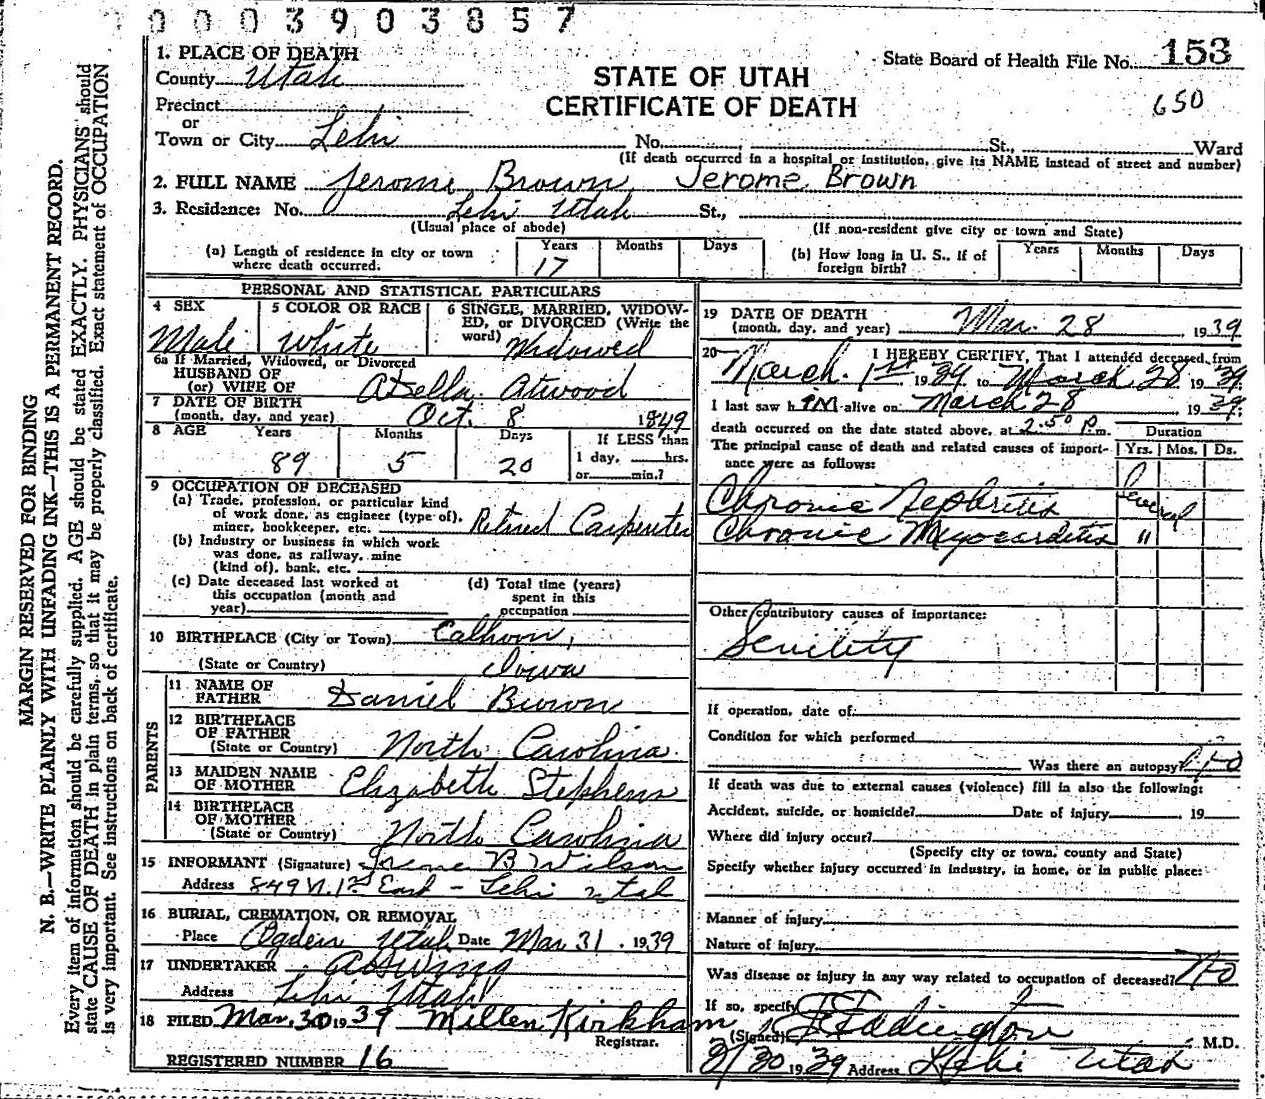 0003903857
1. PLACE OF DEATH
State Board of Health File No. 153
County Utah
STATE OF UTAH
650
Precinct
CERTIFICATE OF DEATH
or
Town or City Lehi No. St., Ward
(If death occurred in a hospital or institution, give its NAME instead of street and number)
2. FULL NAME Jerome Brown Jerome Brown
3. Residence: No. Lehi Utah St.,
(Usual place of abode) (If non-resident give city or town and State)
(a) Length of residence in city or town where death occurred. Years 17 Months Days
(b) How long in U. S., if of foreign birth? Years Months Days
PERSONAL AND STATISTICAL PARTICULARS
4 SEX 5 COLOR OR RACE 6 SINGLE, MARRIED, WIDOW-
ED, or DIVORCED (Write the
word)
Male White Widowed
6a If Married, Widowed, or Divorced
HUSBAND OF
(or) WIFE OF Atwood
7 DATE OF BIRTH
(month, day, and year) Oct. 8 1849
8 AGE Years Months Days If LESS than
1 day, hrs.
89 5 20 or min.?
9 OCCUPATION OF DECEASED
(a) Trade, profession, or particular kind
of work done, as engineer (type of),
miner, bookkeeper, etc. Retired Carpenter
(b) Industry or business in which work
was done, as railway, mine
(kind of), bank, etc.
(c) Date deceased last worked at
this occupation (month and
year)
(d) Total time (years)
spent in this
occupation
10 BIRTHPLACE (City or Town) Calhoun,
(State or Country) Iowa
PARENTS
11 NAME OF
FATHER Daniel Brown
12 BIRTHPLACE
OF FATHER
(State or Country) North Carolina.
13 MAIDEN NAME
OF MOTHER Elizabeth Stephens
14 BIRTHPLACE
OF MOTHER
(State or Country) North Carolina
15 INFORMANT (Signature) Irene B Wilson
Address 849 N. 1st East - Lehi Utah
16 BURIAL, CREMATION, OR REMOVAL
Place Ogden Utah Date Mar 31. 1939
17 UNDERTAKER
Address Lehi Utah
18 FILED Mar. 30 1939 Millen Kirkham
Registrar.
REGISTERED NUMBER 16
19 DATE OF DEATH
(month, day, and year) Mar. 28 1939
20 I HEREBY CERTIFY, That I attended deceased from
March 1st 1939 to March 28 1939.
I last saw h im alive on March 28 1939.
death occurred on the date stated above, at 2:50 P.m.
Duration
The principal cause of death and related causes of import-
ance were as follows:
Yrs. Mos. Ds.
Chronic Nephritis Several
Chronic Myocarditis "
Other contributory causes of importance:
Senility
If operation, date of
Condition for which performed
Was there an autopsy No
If death was due to external causes (violence) fill in also the following:
Accident, suicide, or homicide? Date of injury , 19
Where did injury occur?
(Specify city or town, county and State)
Specify whether injury occurred in industry, in home, or in public place:
Manner of injury
Nature of injury
Was disease or injury in any way related to occupation of deceased? No
If so, specify
(Signed) Eddington M.D.
3/30 1939 Address Lehi Utah
MARGIN RESERVED FOR BINDING
N. B.—WRITE PLAINLY WITH UNFADING INK—THIS IS A PERMANENT RECORD.
Every item of information should be carefully supplied. AGE should be stated EXACTLY. PHYSICIANS should
state CAUSE OF DEATH in plain terms, so that it may be properly classified. Exact statement of OCCUPATION
is very important. See instructions on back of certificate.